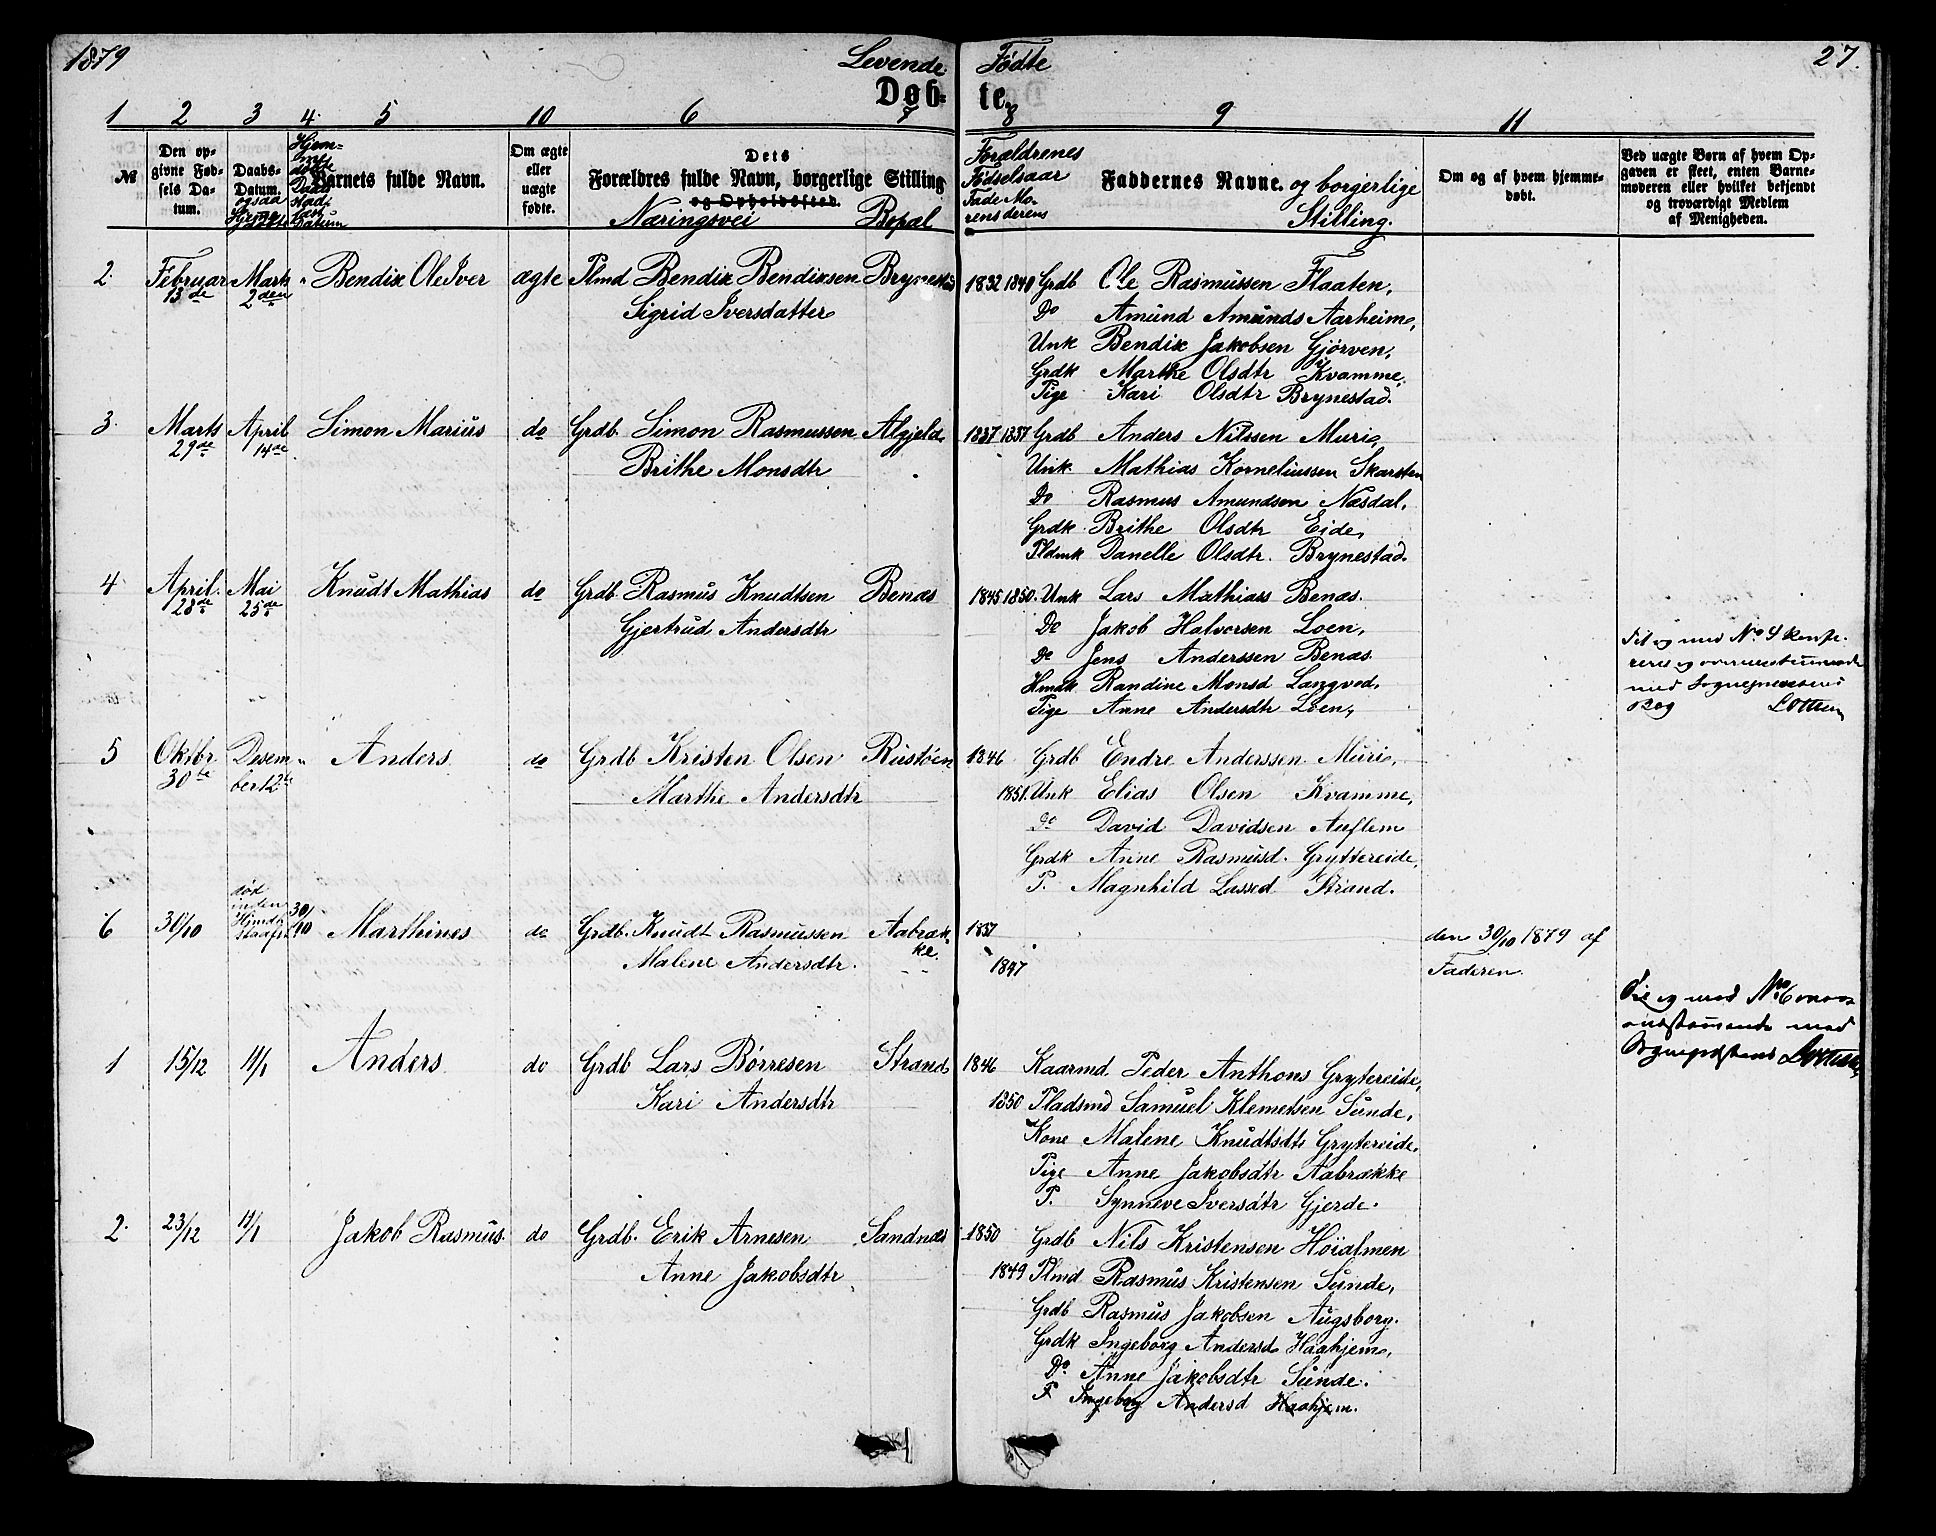 1879 Levende Fødte 27.
Døbte.
1 2 3 4. 5 10 6 7 8 9 11
№ Den opgivne Fødsels Datum. Daabs-Datum. ogsaa Hjemmedøbte Barnets fulde Navn. Om ægte eller uægte fødte. Dets Forældres fulde Navn, borgerlige Stilling og Opholdssted. Næringsvei Bopæl
Forældrenes Fødselsaar Faderens Moderens Faddernes Navne. og borgerlige Stilling. Om og af hvem hjemmedøbt. Ved uægte Børn af hvem Opgaven er skeet, enten Barnemoderen eller hvilket bekjendt og troværdigt Medlem af Menigheden.
2. Februar 13de Marts 2den " Bendix Ole Iver ægte Plmd Bendix Bendixsen Brynestad 1832 1840 Grdb Ole Rasmussen Flaaten,
Sigrid Iversdatter Do Amund Amunds Aarheim,
Unk Bendix Jakobsen Gjörven,
Grdk Marthe Olsdtr Kvamme,
Pige Kari Olsdtr Brynestad.
3. Marts 29de April 14de Simon Marius do Grdb. Simon Rasmussen Algjeld 1837 1837 Grdb Anders Nilssen Muri,
Brithe Monsdtr Unk. Mathias Korneliussen Skarsten
Do Rasmus Amundsen Næsdal,
Grdk. Brithe Olsdtr Eide,
Pldmk Danelle Olsdtr. Brynestad.
4 April. 28de Mai 25de Knudt Mathias do Grdb Rasmus Knudtsen Benæs 1845 1850. Unk Lars Mathiass Benæs.
Gjertrud Andersdtr Do Jakob Halvorsen Loen,
Do Jens Anderssen Benæs.
Hmdk. Randine Monsd Langvod,
Pige Anne Andersdtr Loen,
Til og med No 4
med
Bog
5 Oktbr 30te Desember 12te " Anders do Grdb Kristen Olsen Rustöen 1846 Grdb Endre Anderssen Muri,
Marthe Andersdtr 1851. Unk Elias Olsen Kvamme,
Do David Davidsen Auflem
Grdk Anne Rasmusd. Gryttereide,
P. Magnhild Lassed Strand.
6 30/10 død inden 30/10 Marthines do Grdb. Knudt Rasmussen Aabrække. 1851 den 30/10 1879 af
Malene Andersdtr. 1847 Faderen.
og med No 6
med
1 15/12 11/1 Anders do Grdb Lars Börresen Strand 1846 Kaarmd. Peder Anthons Grytereide,
Kari Andersdtr 1850 Pladsmd Samuel Klemetsen Sunde,
Kone Malene Knudtsdtr Grytereide.
Pige Anne Jakobsdtr. Aabrække
P. Synneve Iversdtr Gjerde.
2. 23/12 11/1 Jakob Rasmus. do Grdb. Erik Arnesen Sandnæs 1850 Grdb Nils Kristensen Höialmen
Anne Jakobsdtr 1849 Plmd Rasmus Kristensen Sunde,
Grdb Rasmus Jakobsen Augsborg.
Grdk Ingeborg Andersd. Haahjem,
Do Anne Jakobsdtr Sunde.
P Ingeborg Andersd Haahjem.